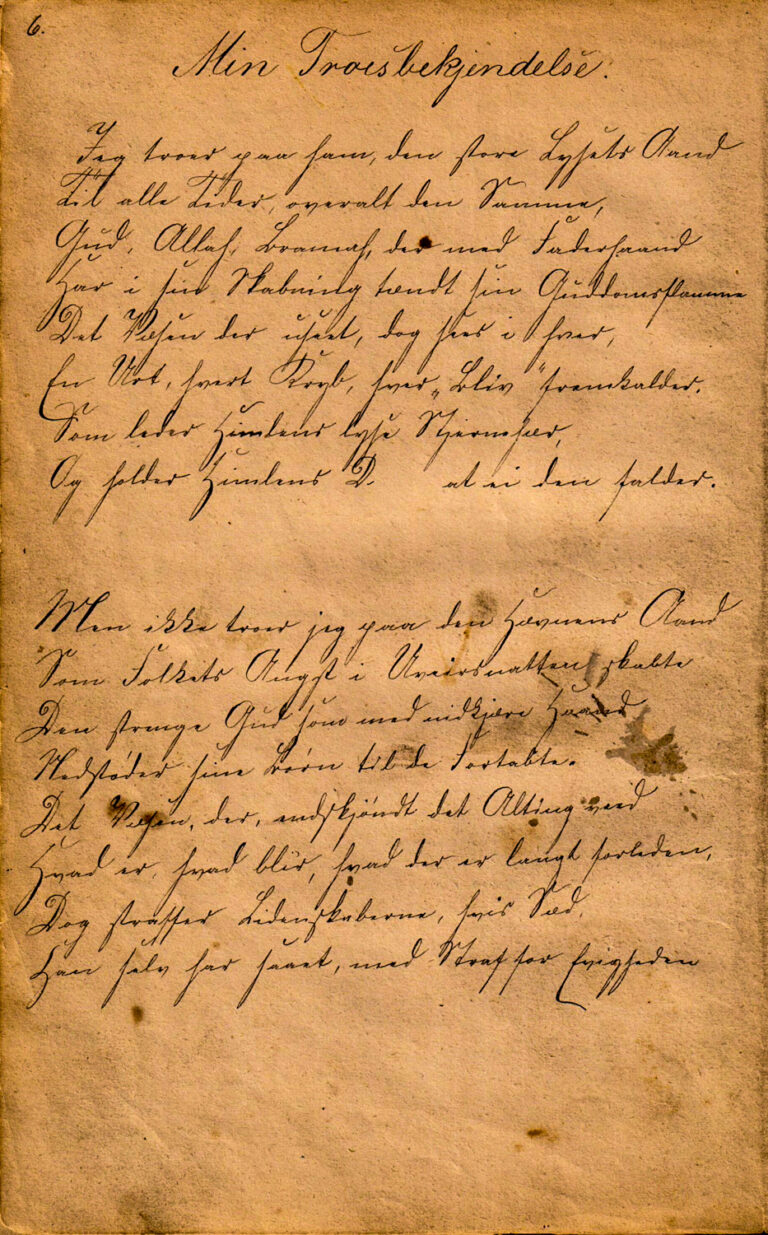 6.
Min Troesbekjendelse.
Jeg troer paa ham, den store Lysets Aand
Til alle Tider, overalt den Samme,
Gud, Allah, Bramah, der med Faderhaand
Har i sin Skabning tændt sin Guddomsflamme
Det Væsen der useet, dog sees i hver,
En Urt, hvert Kryb, hver „Bliv“ fremkalder.
Som leder Himlens lyse Stjernehær,
Og holder Himlens D. at ei den falder.
Men ikke troer jeg paa den Hævnens Aand
Som Folkets Angst i Uveirsnatten skabte
Den strenge Gud som med nidkjære Haand
Nedstøder sine Børn til de Fortabte.
Det Væsen, der, endskjøndt det Alting veed
Hvad er, hvad blir, hvad der er langt forleden,
Dog straffer Lidenskaberne, hvis Sæd,
Han selv har saaet, med Straf for Evigheden